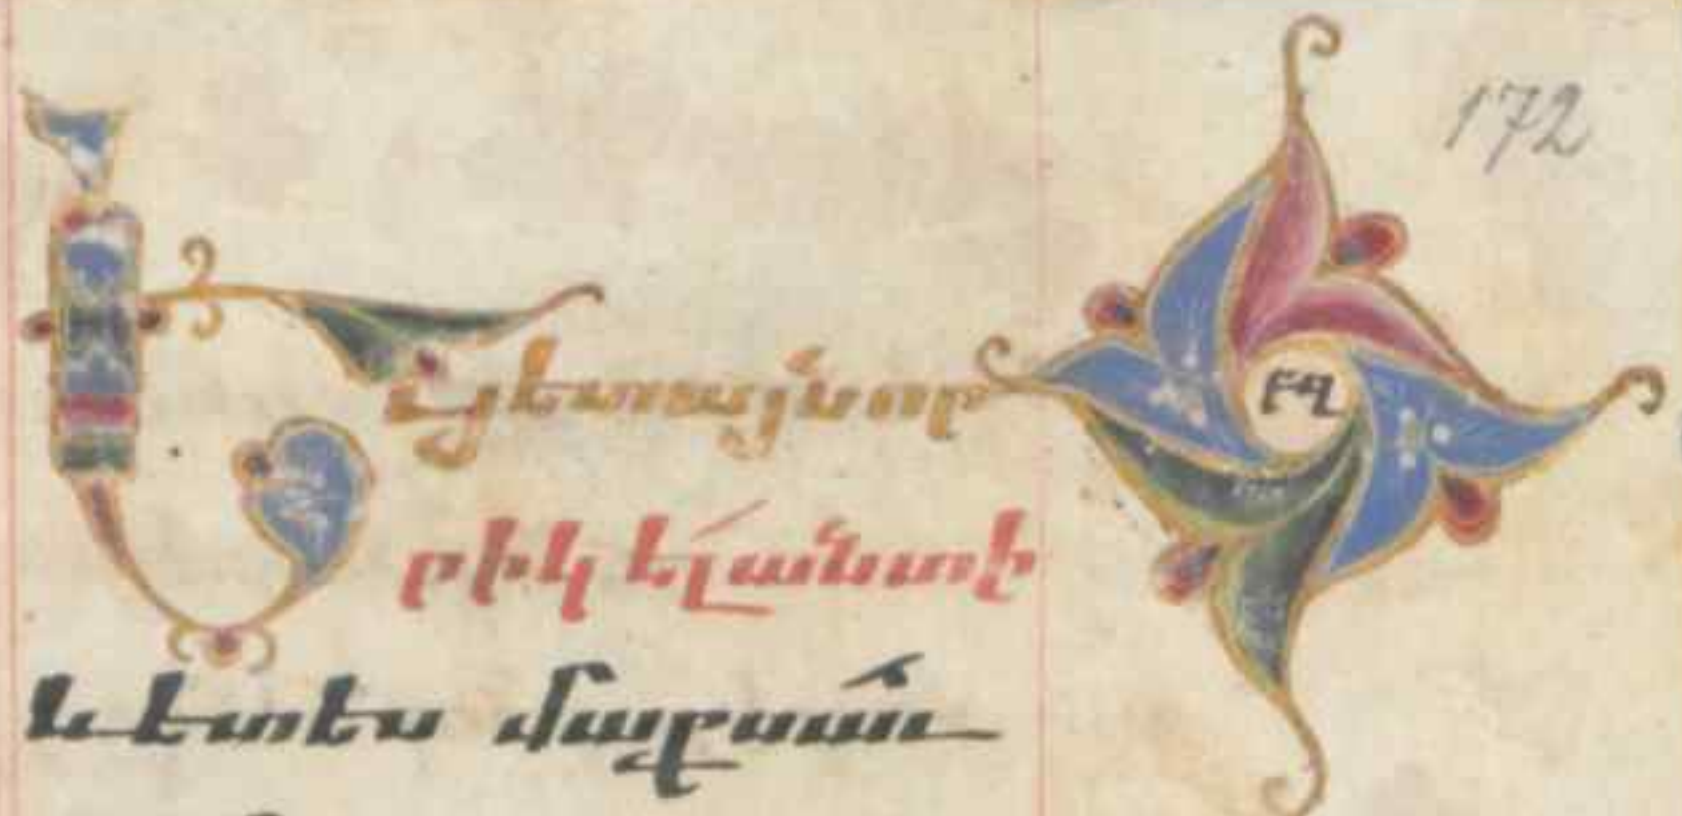 172
Եւ յետ այնո
րիկ ել անտի
և ետես մաքսաւ